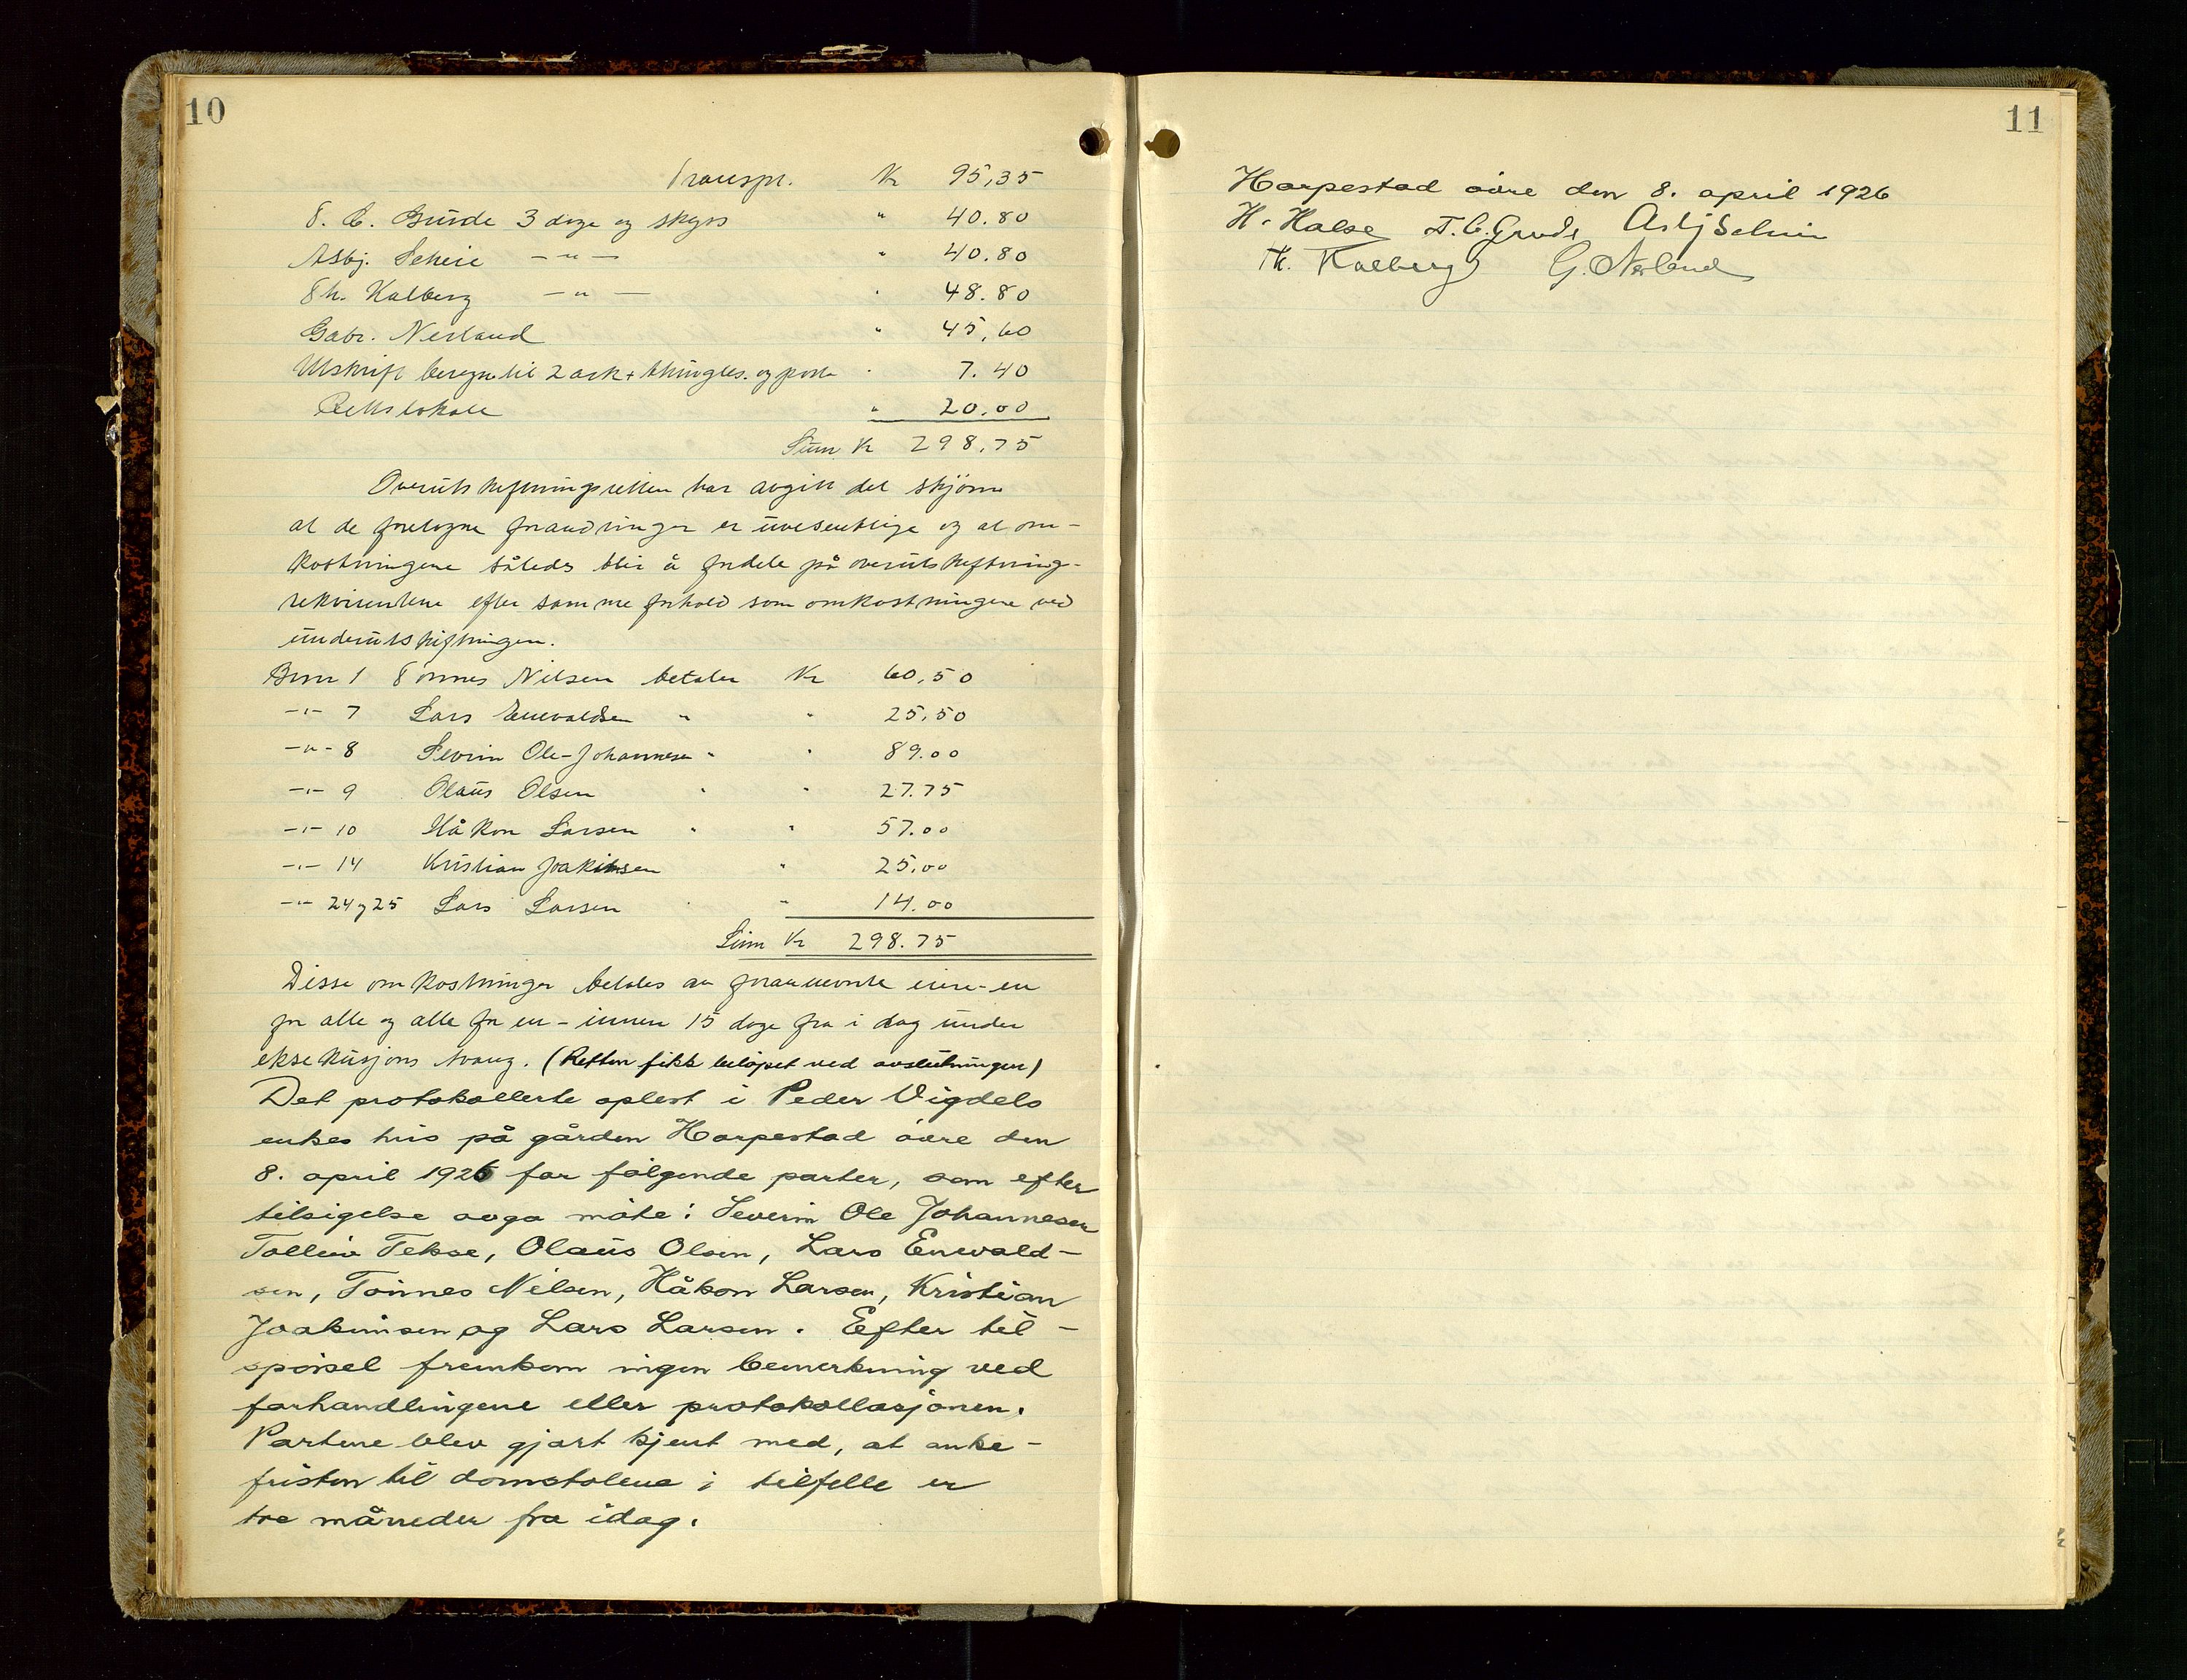 10
Transpr. Kr 95,35
T. C. Grude 3 dage og skyss " 40.80
Asbj. Scheie —"— " 40.80
Th. Kalberg —"— " 48.80
Gabr. Nerland " 45,60
Utskrift beregn. til 2 ark + thingles. og porto " 7.40
Rettslokale " 20.00
Sum Kr 298,75
Overutskiftningsretten har avgitt det skjønn
at de foretagne forandringer er uvesentlige og at om-
kostningene således blir å fordele på overutskiftning-
rekvirentene efter samme forhold som omkostningene ved
underutskiftningen.
Bnr 1 Tønnes Nilsen betaler Kr 60,50
-"- 7 Lars Enevaldsen " " 25,50
-"- 8 Sevrin Ole-Johannesen " " 89.00
-"- 9 Olaus Olsen " " 27.75
-"- 10 Håkon Larsen " " 57.00
-"- 14 Kristian Joakimsen " 25,00
-"- 24 og 25 Lars Larsen " " 14.00
Sum Kr 298.75
Disse omkostninger betales av forannevnte en-
for alle og alle for en - innen 15 dage fra i dag under
eksekusjons tvang. (Retten fikk beløpet ved avslutningen)
Det protokollerte oplest i Peder Vigdels
enkes hus på gården Harpestad øvre den
8. april 1926 for følgende parter, som efter
tilsigelse avga møte: Severin Ole Johannesen
Tolleiv Tekse, Olaus Olsen, Lars Enevald-
sen, Tønnes Nilsen, Håkon Larsen, Kristian
Joakimsen og Lars Larsen. Eefter til-
spørsel fremkom ingen bemerkning ved
forhandlingene eller protokollasjonen.
Partene blev gjort kjent med, at anke-
fristen til domstolene i tilfelle er
tre måneder fra idag.
11
Harpestad øvre den 8. april 1926
H. Halse T. C. Grude Asbj Scheie
Th. Kalberg G. Nerland